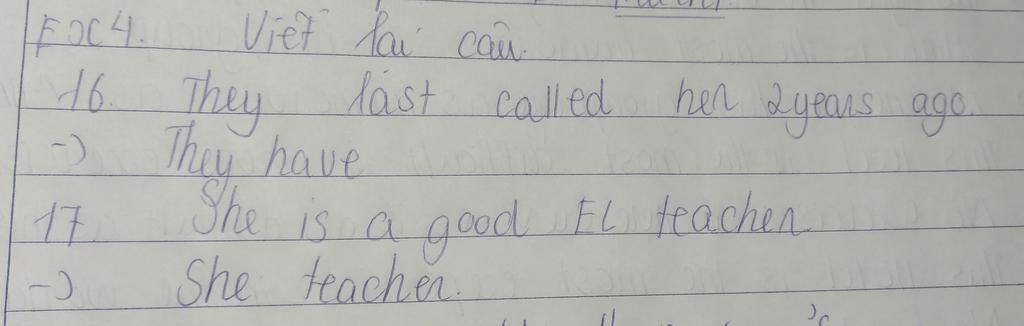 EX4. Viết lại câu.
16. They last called her 2 years ago.
-> They have
17 She is a good EL teacher
-> She teacher.